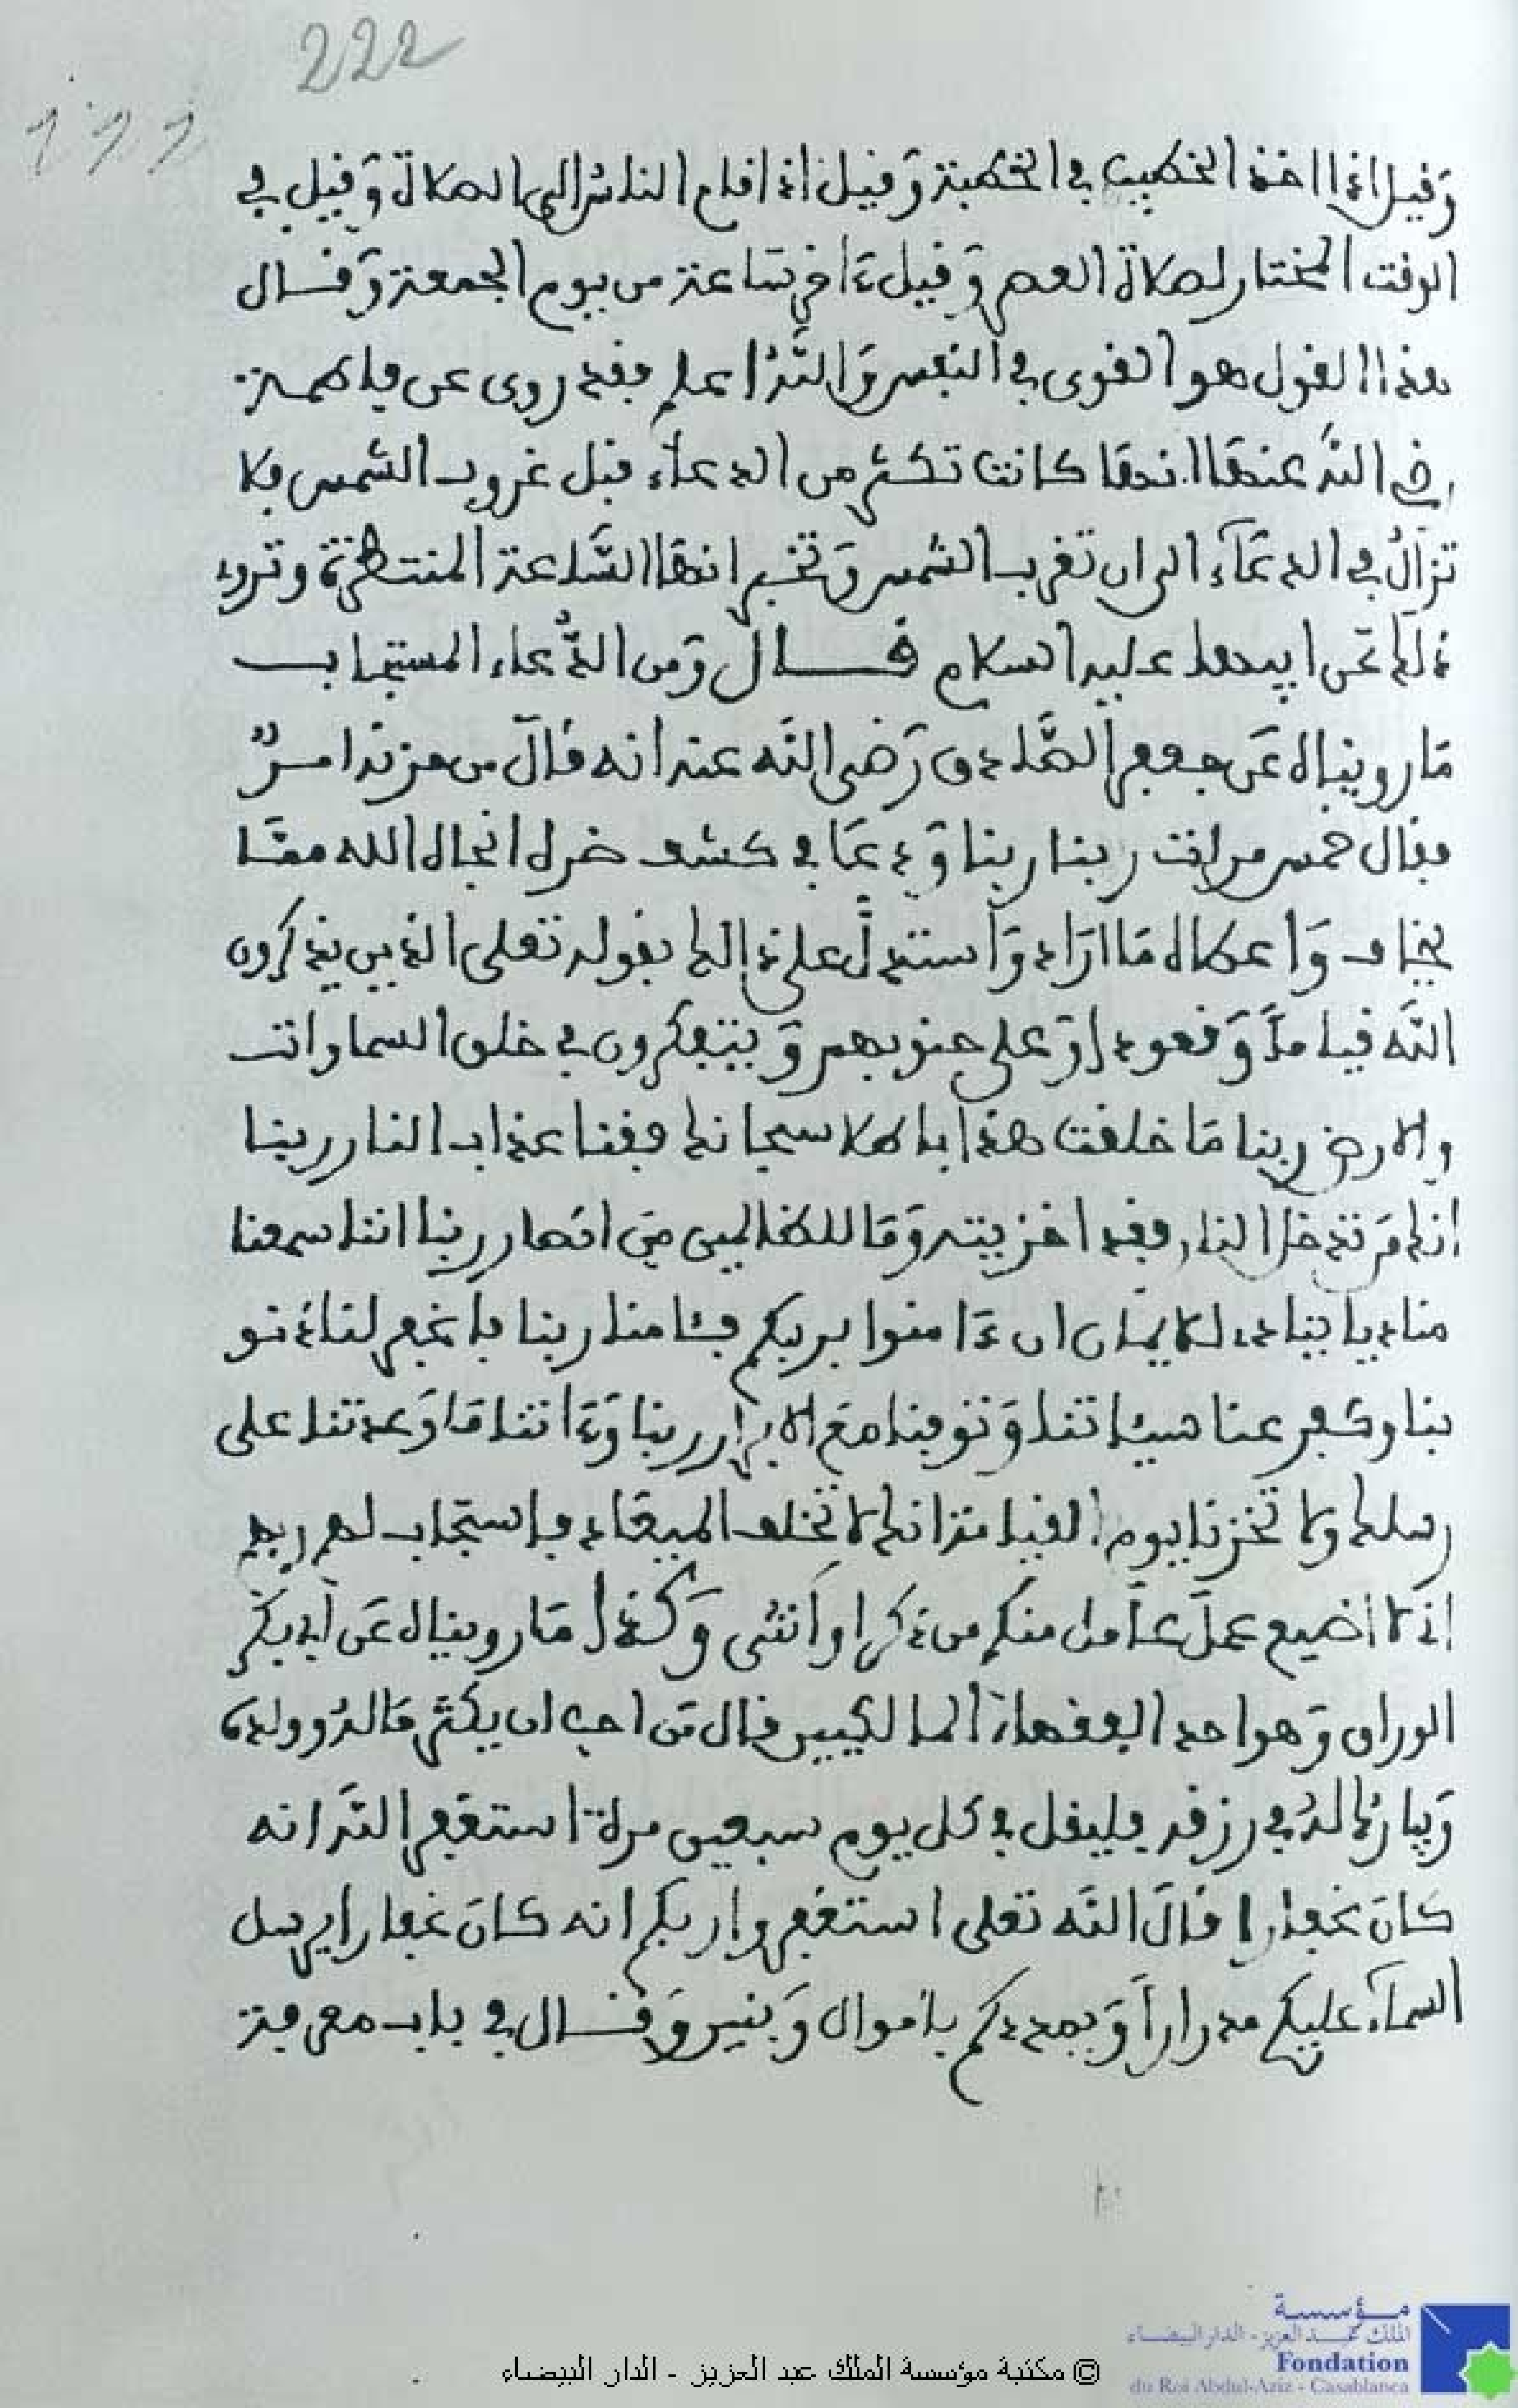 222
111
وَقيل اذا اخذ الخطيب في الخطبة وَقيل اذا اقام الناس الى الصلاة وَقيل في
الوقت المختار لصلاة العصر وَقيل ءَاخر ساعة من يوم الجمعة وَقال
هذا القول هو القوى في النفس وَاللهُ اعلم فقد روى عن فاطمة
رضي الله عنها انها كانت تكثر من الدعاء قبل غروب الشمس فلا
تزالُ في الدعَآء الى ان تغرب الشمس وَتخبر انها السَّاعة المنتظرة وترويه
ذلك عَن ابيها عليه السلام قال وَمن الدُّعاء المستجاب
مَا رويناه عَن جعفر الصَّادق رَضي الله عنه انه قالَ من حزبهُ امرٌ
فقال خمس مرات ربنا ربنا وَدعَا في كشف ضره انجاه الله ممَّا
يخاف وَاعطاه مَا ارَاد وَاستدلَّ على ذالك بقوله تعلى الذين يذكرون
اللَّه قياماً وَقعودا وَعلى جنوبهم وَيتفكرون في خلق السماوات
والارض ربنا مَا خلقت هذا باطلا سبحانك فقنا عذاب النار ربنا
انك مَن تدخل النار فقد اخزيته وَمَا للظالمين مِن انصار ربنا اننا سمعنا
مناديا ينادي للايمان ان ءَامنوا بربكم فئامنا ربنا فاغفر لنا ذنو
بنا وكفر عنا سيئاتنا وَتوفنا معَ الابرار ربنا وَءَاتنا مَا وَعدتنا على
رسلك ولا تخزنا يوم القيامة انك لا تخلف الميعَاد فاستجاب لهم ربهم
اني لا اضيع عملَ عَامل منكم من ذكر او انثى وَكذا مَا رويناه عَن ابي بكر
الوراق وَهو احد الفقهاء المالكيين قال مَن احب ان يكثر مَالهُ وولدهُ
وَيباركُ لهُ في رزقه فليقل في كل يوم سبعين مرة استغفر اللَّه انه
كانَ غفارا قالَ اللَّه تعلى استغفروا ربكم انه كانَ غفارا يرسل
السمآء عليكم مدراراً وَيمددكم باموال وَبنين وَقال في باب معرفة
© مكتبة مؤسسة الملك عبد العزيز - الدار البيضاء
مؤسسة
الملك عبد العزيز - الدار البيضاء
Fondation
du Roi Abdul-Aziz - Casablanca